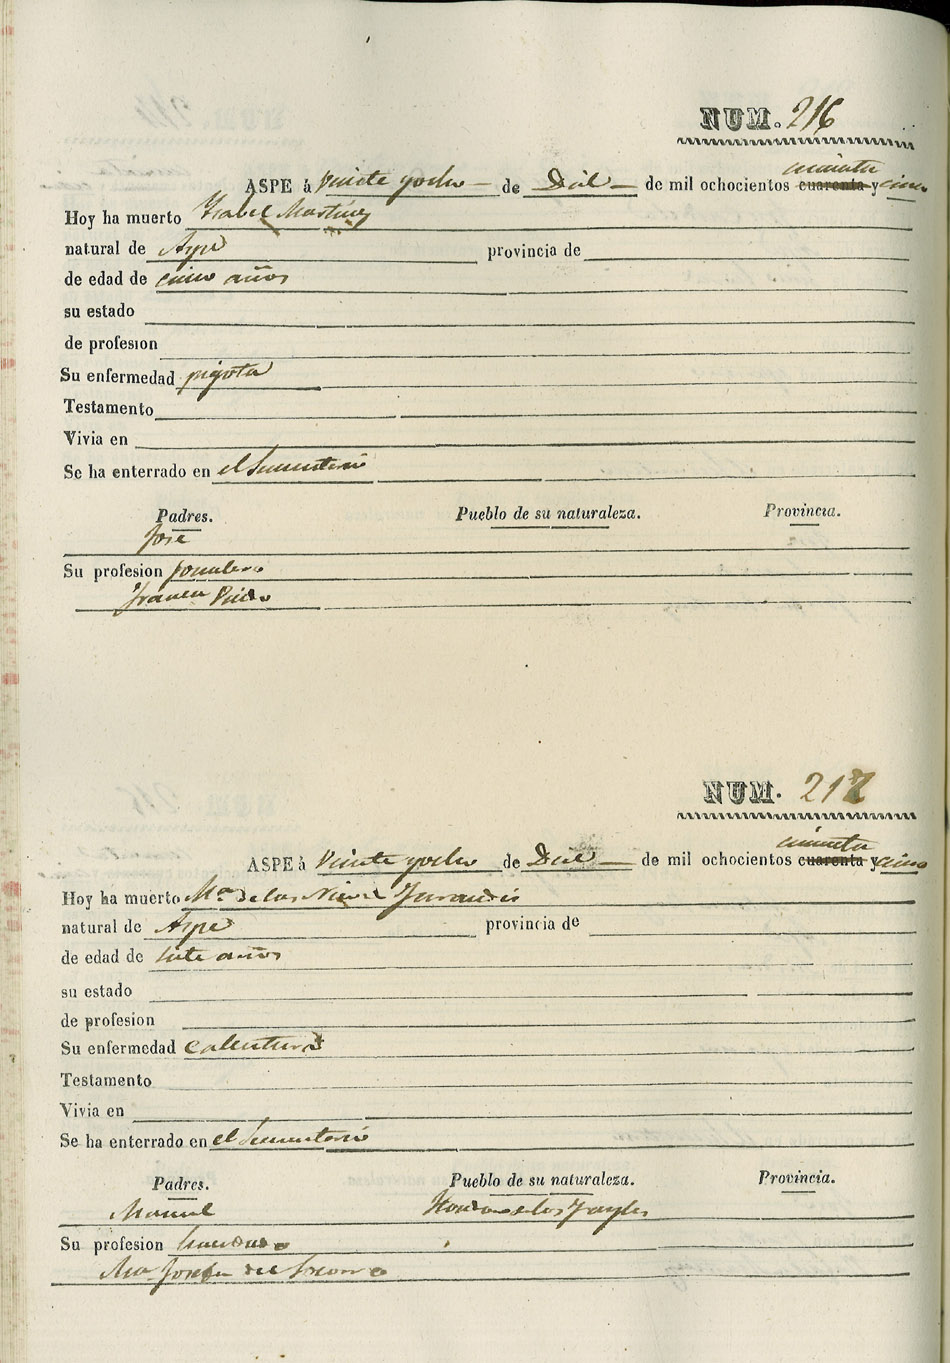 NUM. 216
ASPE á veinte y ocho de Dbl de mil ochocientos cuarenta cincuenta y cinco
Hoy ha muerto Ysabel Martinez
natural de Aspe provincia de
de edad de cinco años
su estado
de profesion
Su enfermedad pigota
Testamento
Vivia en
Se ha enterrado en el Sementerio
Padres. Pueblo de su naturaleza. Provincia.
Jose
Su profesion Jornalero
NUM. 217
ASPE á veinte y ocho de Dbl de mil ochocientos cuarenta cincuenta y cinco
Hoy ha muerto Mª de las Nieves
natural de Aspe provincia de
de edad de siete años
su estado
de profesion
Su enfermedad calentura
Testamento
Vivia en
Se ha enterrado en el Sementerio
Padres. Pueblo de su naturaleza. Provincia.
Manuel Hondon de los Frayles
Su profesion hacendado
Mª Josefa del Socorro